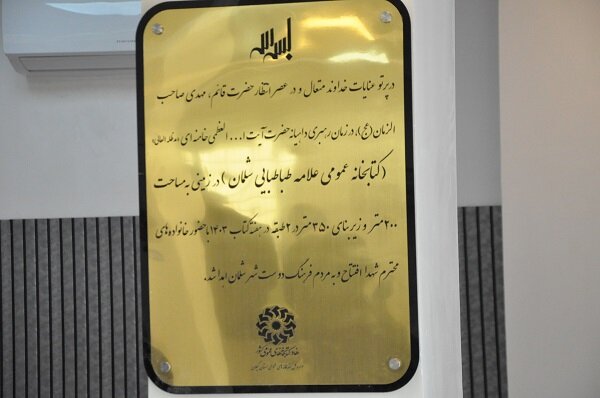 بسمه تعالی
در پرتو عنایات خداوند متعال و در عصر انتظار حضرت قائم، مهدی صاحب
الزمان (عج)، در زمان رهبری داهیانه حضرت آیت ا... العظمی خامنه ای (مدظله العالی)
(کتابخانه عمومی علامه طباطبایی شلمان) در زمینی به مساحت
۲۰۰ متر و زیربنای ۳۵۰ متر در ۲ طبقه در هفته کتاب ۱۴۰۳ با حضور خانواده های
محترم شهدا افتتاح و به مردم فرهنگ دوست شهر شلمان اهدا شد.
نهاد کتابخانه های عمومی کشور